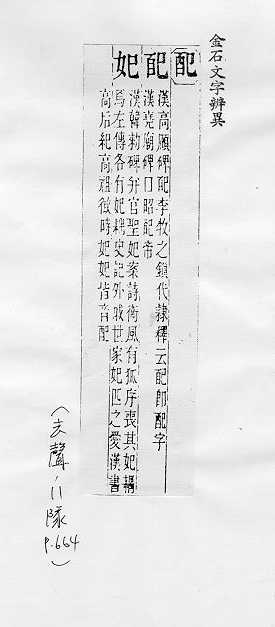 金石文字辨異
配
配
漢高頤碑配李牧之鎮代隸釋云配卽配字
漢堯廟碑口昭配帝
妃
漢韓勑碑幷官聖妃案詩衛風有狐序喪其妃耦
焉左傳各有妃耦史記外戚世家妃匹之愛漢書
高后紀高祖微時妃妃皆音配
(去聲,11隊 p.664)